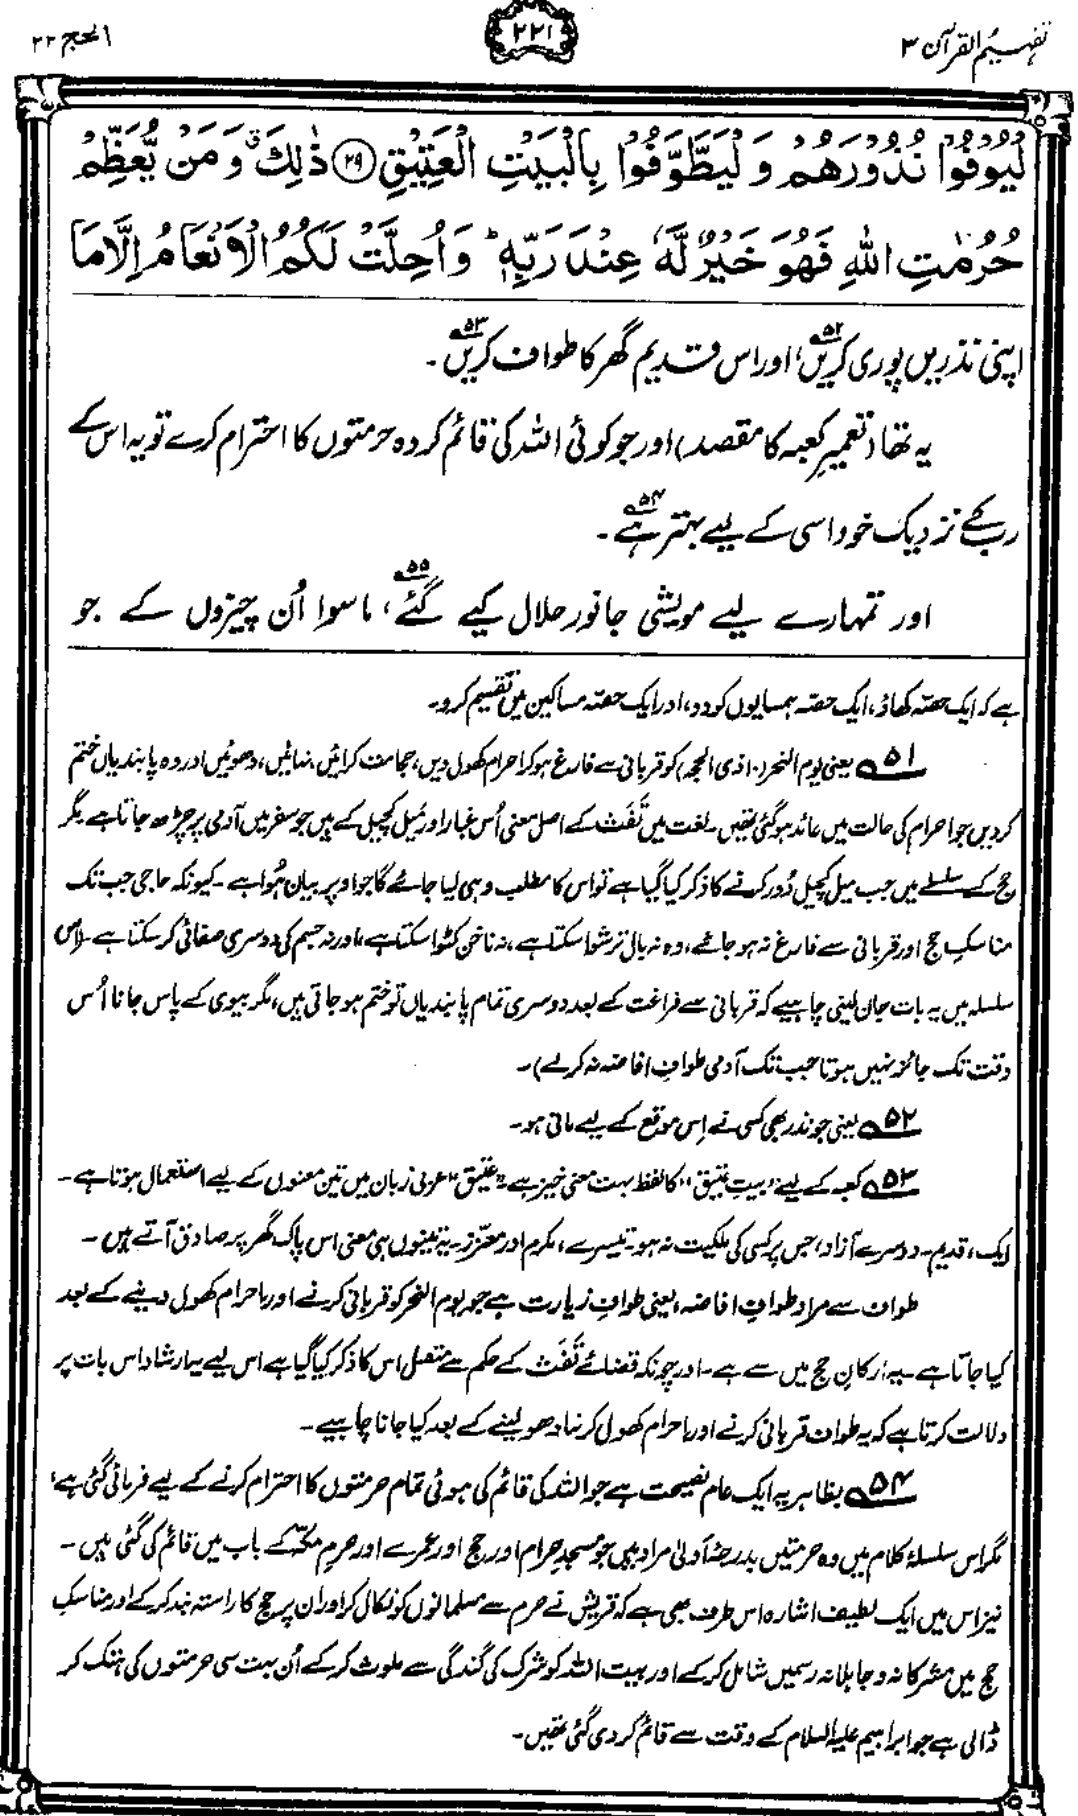 تفہیم القرآن ۳
۲۲۱
الحج ۲۲
لْيُوْفُوْا نُذُوْرَهُمْ وَ لْيَطَّوَّفُوْا بِالْبَيْتِ الْعَتِيْقِ ﴿۲۹﴾ ذٰلِكَ ۗ وَ مَنْ يُّعَظِّمْ
حُرُمٰتِ اللّٰهِ فَهُوَ خَيْرٌ لَّهٗ عِنْدَ رَبِّهٖ ؕ وَ اُحِلَّتْ لَكُمُ الْاَنْعَامُ اِلَّا مَا
اپنی نذریں پوری کریں۵۲، اور اس قدیم گھر کا طواف کریں۵۳۔
یہ تھا (تعمیرِ کعبہ کا مقصد) اور جو کوئی اللہ کی قائم کردہ حرمتوں کا احترام کرے تو یہ اس کے
رب کے نزدیک خود اسی کے لیے بہتر ہے۵۴۔
اور تمہارے لیے مویشی جانور حلال کیے گئے۵۵، ماسوا اُن چیزوں کے جو
ہے کہ ایک حصّہ کھاؤ، ایک حصّہ ہمسایوں کو دو، اور ایک حصّہ مساکین میں تقسیم کرو۔
۵۱ یعنی یوم النحر (۱۰ ذی الحجہ) کو قربانی سے فارغ ہو کر احرام کھول دیں، حجامت کرائیں، نہائیں، دھوئیں اور وہ پابندیاں ختم
کر دیں جو احرام کی حالت میں عائد ہو گئی تھیں۔ لغت میں تَفَث کے اصل معنی اُس غبار اور میل کچیل کے ہیں جو سفر میں آدمی پر چڑھ جاتا ہے۔ مگر
حج کے سلسلے میں جب میل کچیل دُور کرنے کا ذکر کیا گیا ہے تو اس کا مطلب وہی لیا جائے گا جو اوپر بیان ہُوا ہے۔ کیونکہ حاجی جب تک
مناسکِ حج اور قربانی سے فارغ نہ ہو جائے، وہ نہ بال ترشوا سکتا ہے، نہ ناخن کٹوا سکتا ہے، اور نہ جسم کی دوسری صفائی کر سکتا ہے۔ (اس
سلسلہ میں یہ بات جان لینی چاہیے کہ قربانی سے فراغت کے بعد دوسری تمام پابندیاں تو ختم ہو جاتی ہیں، مگر بیوی کے پاس جانا اُس
وقت تک جائز نہیں ہوتا جب تک آدمی طوافِ افاضہ نہ کر لے)۔
۵۲ یعنی جو نذر بھی کسی نے اِس موقع کے لیے مانی ہو۔
۵۳ کعبہ کے لیے "بیتِ عتیق" کا لفظ بہت معنی خیز ہے۔ "عتیق" عربی زبان میں تین معنوں کے لیے استعمال ہوتا ہے۔
ایک، قدیم۔ دوسرے آزاد، جس پر کسی کی ملکیت نہ ہو۔ تیسرے، مکرم اور معزّز۔ یہ تینوں ہی معنی اس پاک گھر پر صادق آتے ہیں۔
طواف سے مراد طوافِ افاضہ، یعنی طوافِ زیارت ہے جو یوم النحر کو قربانی کرنے اور احرام کھول دینے کے بعد
کیا جاتا ہے۔ یہ ارکانِ حج میں سے ہے۔ اور چونکہ قضائے تَفَث کے حکم سے متصل اس کا ذکر کیا گیا ہے اس لیے یہ ارشاد اس بات پر
دلالت کرتا ہے کہ یہ طواف قربانی کرنے اور احرام کھول کر نہا دھو لینے کے بعد کیا جانا چاہیے۔
۵۴ بظاہر یہ ایک عام نصیحت ہے جو اللہ کی قائم کی ہوئی تمام حرمتوں کا احترام کرنے کے لیے فرمائی گئی ہے،
مگر اس سلسلۂ کلام میں وہ حرمتیں بدرجۂ اَولیٰ مراد ہیں جو مسجدِ حرام اور حج اور عمرے اور حرمِ مکّہ کے باب میں قائم کی گئی ہیں۔
نیز اس میں ایک لطیف اشارہ اس طرف بھی ہے کہ قریش نے حرم سے مسلمانوں کو نکال کر اور ان پر حج کا راستہ بند کر کے اور مناسکِ
حج میں مشرکانہ و جاہلانہ رسمیں شامل کر کے اور بیت اللہ کو شرک کی گندگی سے ملوث کر کے اُن بہت سی حرمتوں کی ہتک کر
ڈالی ہے جو ابراہیم علیہ السلام کے وقت سے قائم کر دی گئی تھیں۔